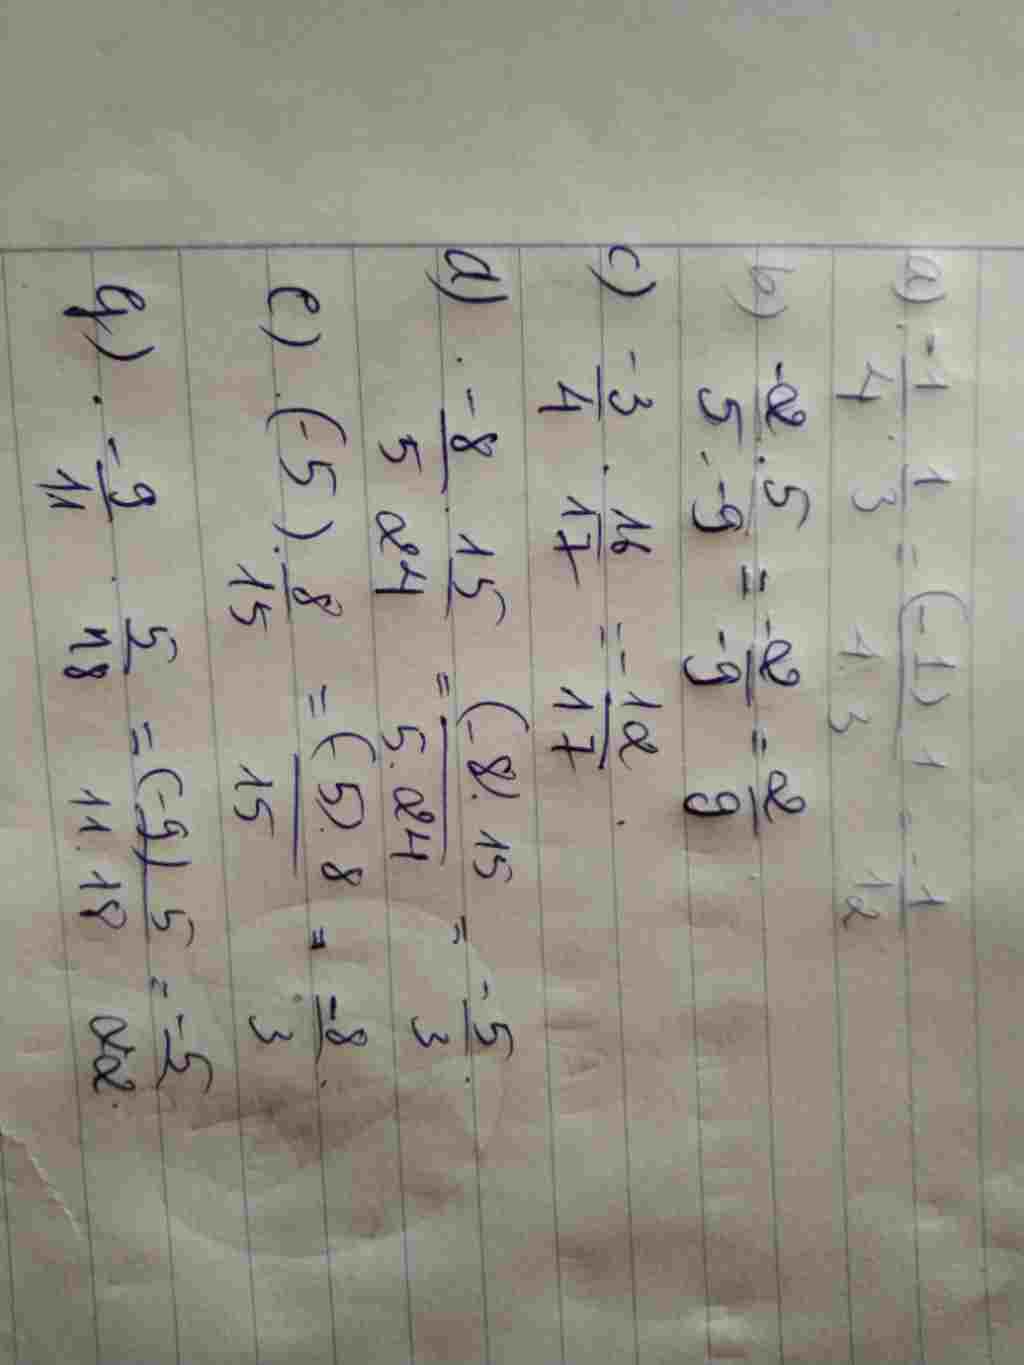 a) -1/4 . 1/3 = (-1) 1/1.3 = -1/12
b) -2/5 . 5/-9 = -2/-9 = 2/9
c) -3/4 . 16/17 = -12/17 .
d) . -8/5 . 15/24 = (-8). 15/5.24 = -5/3 .
e) (-5) . 8/15 = (-5). 8/15 = -8/3 .
g) . -9/11 . 5/18 = (-9) 5/11.18 = -5/22 .